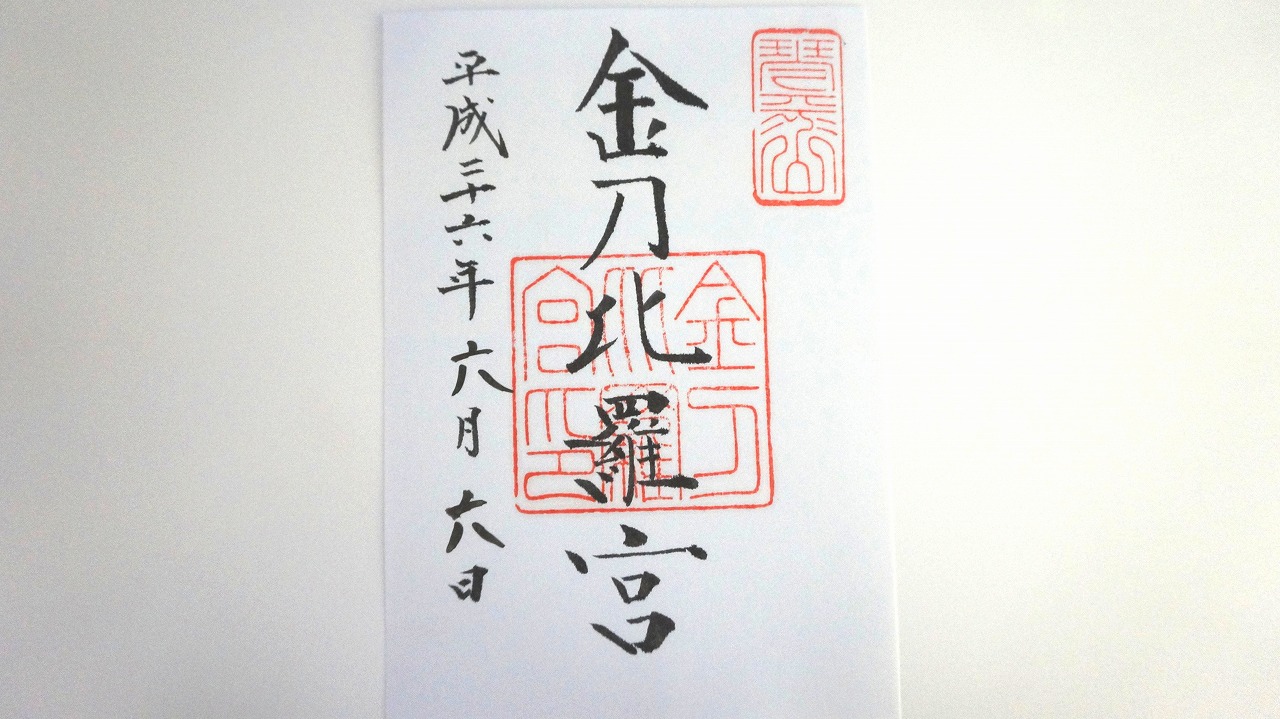 琴平山
金刀比羅宮
金刀
比羅
宮印
平成二十六年六月六日